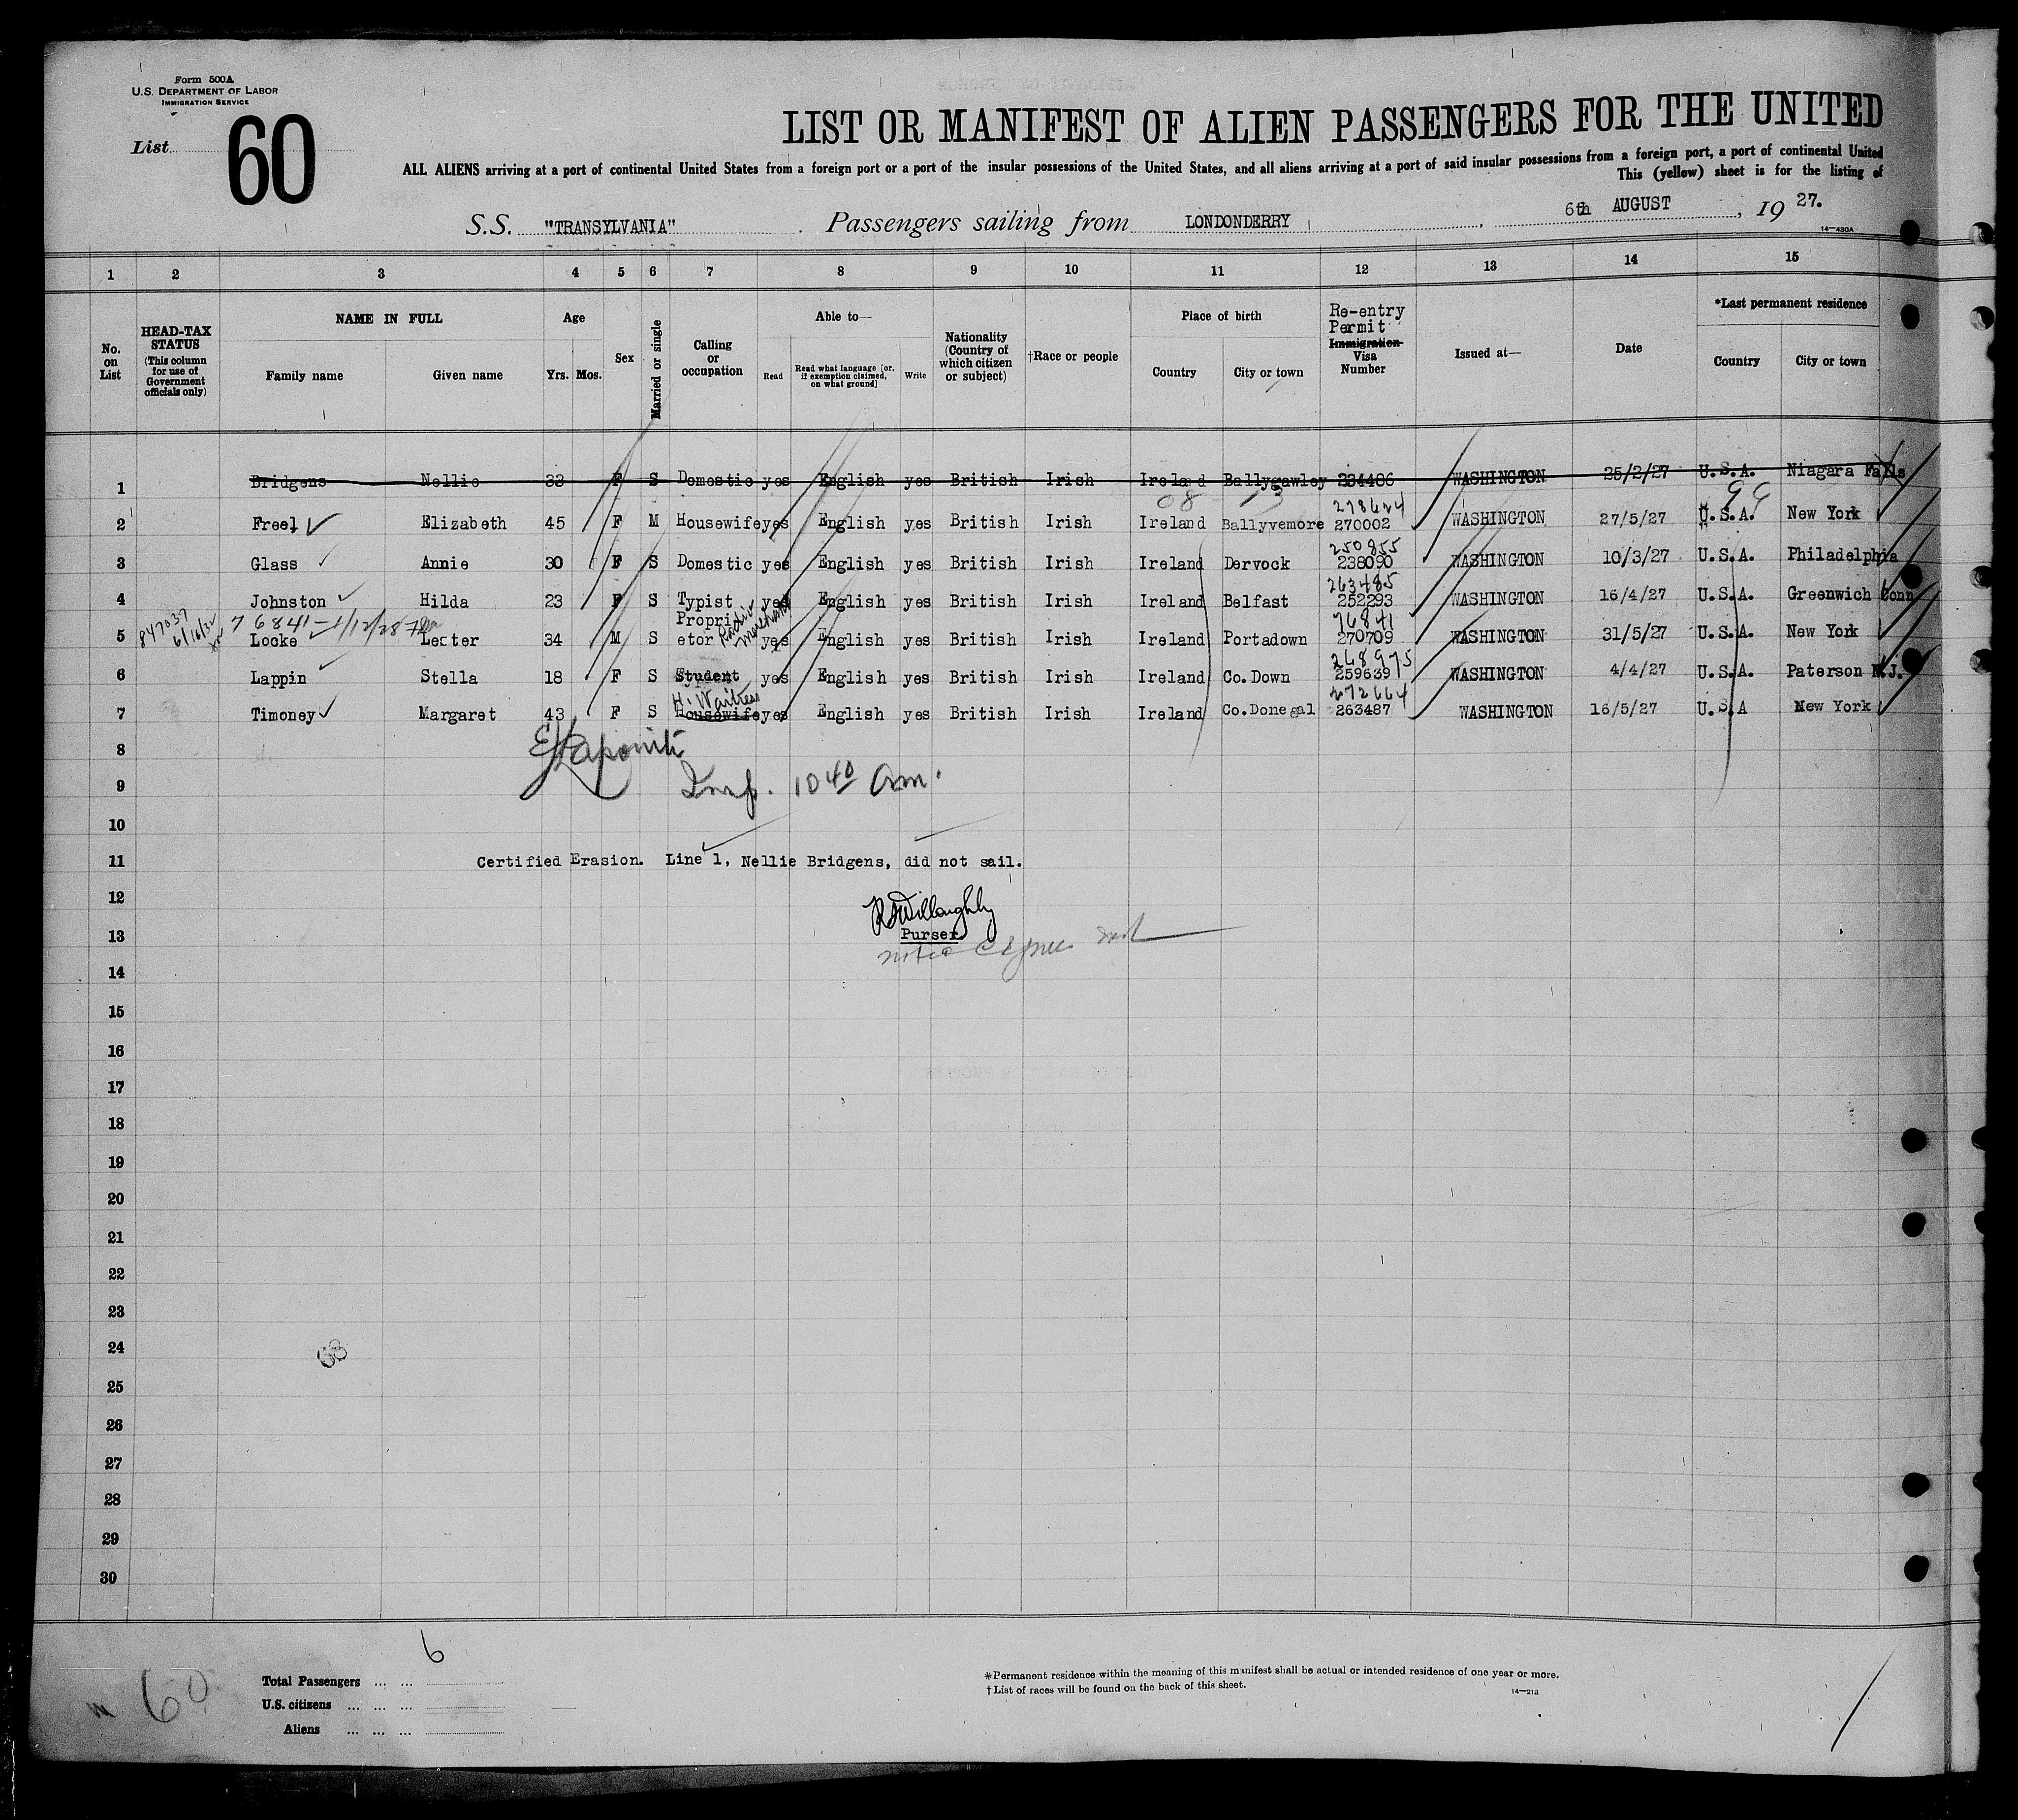 Form 500A
U.S. DEPARTMENT OF LABOR
IMMIGRATION SERVICE
List 60
LIST OR MANIFEST OF ALIEN PASSENGERS FOR THE UNITED
ALL ALIENS arriving at a port of continental United States from a foreign port or a port of the insular possessions of the United States, and all aliens arriving at a port of said insular possessions from a foreign port, a port of continental United
This (yellow) sheet is for the listing of
S.S. "TRANSYLVANIA" Passengers sailing from LONDONDERRY, 6th AUGUST, 19 27.
14-430A
1 2 3 4 5 6 7 8 9 10 11 12 13 14 15
No. on List
HEAD-TAX STATUS (This column for use of Government officials only)
NAME IN FULL
Family name Given name
Age
Yrs. Mos.
Sex
Married or single
Calling or occupation
Able to—
Read Read what language [or, if exemption claimed, on what ground] Write
Nationality (Country of which citizen or subject)
†Race or people
Place of birth
Country City or town
Re-entry Permit
Immigration Visa Number
Issued at—
Date
*Last permanent residence
Country City or town
1 Bridgens Nellie 33 F S Domestic yes English yes British Irish Ireland Ballygawley 234486 WASHINGTON 25/2/27 U.S.A. Niagara Falls
08 13 278624 99
2 Freel Elizabeth 45 F M Housewife yes English yes British Irish Ireland Ballyvemore 270002 WASHINGTON 27/5/27 U.S.A. New York
250855
3 Glass Annie 30 F S Domestic yes English yes British Irish Ireland Dervock 238090 WASHINGTON 10/3/27 U.S.A. Philadelphia
263485
4 Johnston Hilda 23 F S Typist yes English yes British Irish Ireland Belfast 252293 WASHINGTON 16/4/27 U.S.A. Greenwich Conn
847037 6/16/32 76841-1/12/28 76841
5 Locke Lecter 34 M S Proprietor Radio Merchant yes English yes British Irish Ireland Portadown 270709 WASHINGTON 31/5/27 U.S.A. New York
268975
6 Lappin Stella 18 F S Student yes English yes British Irish Ireland Co.Down 259639 WASHINGTON 4/4/27 U.S.A. Paterson N.J.
H. Waitress 272664
7 Timoney Margaret 43 F S Housewife yes English yes British Irish Ireland Co.Donegal 263487 WASHINGTON 16/5/27 U.S.A New York
8
9 Insp. 10 40 am.
10
11 Certified Erasion. Line 1, Nellie Bridgens, did not sail.
12 Willoughby
13 Purser.
14
15
16
17
18
19
20
21
22
23
24 68
25
26
27
28
29
30
6
Total Passengers
U.S. citizens
Aliens
60
*Permanent residence within the meaning of this manifest shall be actual or intended residence of one year or more.
†List of races will be found on the back of this sheet.
14-213